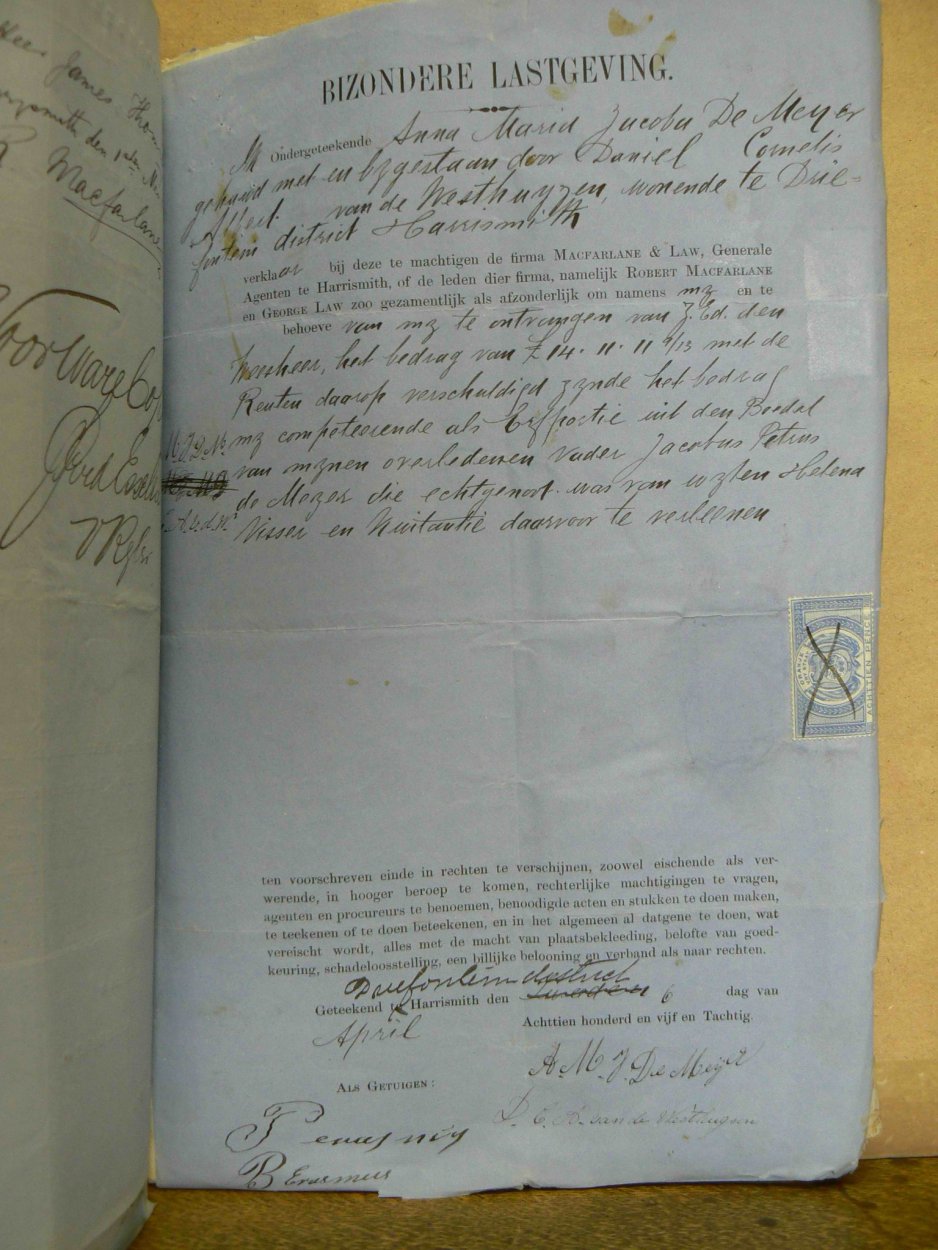 James Thom
Macfarlane
BIZONDERE LASTGEVING.
Ik Ondergeteekende Anna Maria Jacoba De Meyer
gehuwd met en bygestaan door Daniel Cornelis
van de Westhuyzen, wonende te Drie=
fontein district Harrismith
verklaar bij deze te machtigen de firma MACFARLANE & LAW, Generale
Agenten te Harrismith, of de leden dier firma, namelijk ROBERT MACFARLANE
en GEORGE LAW zoo gezamentlijk als afzonderlijk om namens my en te
behoeve van my te ontvangen van Z.Ed. den
Weesheer, het bedrag van £14.11.11 9/13 met de
Renten daarop verschuldigd zynde het bedrag
my competeerende als Erfportie uit den Boedel
van mynen overledenen vader Jacobus Petrus
de Meyer die echtgenoot was van wylen Helena
Visser en Kwitantie daarvoor te verleenen
ORANJE
ACHTTIEN PENCE
ten voorschreven einde in rechten te verschijnen, zoowel eischende als ver-
werende, in hooger beroep te komen, rechterlijke machtigingen te vragen,
agenten en procureurs te benoemen, benoodigde acten en stukken te doen maken,
te teekenen of te doen beteekenen, en in het algemeen al datgene te doen, wat
vereischt wordt, alles met de macht van plaatsbekleeding, belofte van goed-
keuring, schadeloosstelling, een billijke belooning en verband als naar rechten.
Driefontein district
Geteekend te Harrismith den 6 dag van
April Achttien honderd en vijf en Tachtig.
A. M. J. De Meyer
ALS GETUIGEN:
D. C. A. van de Westhuyzen
B Erasmus